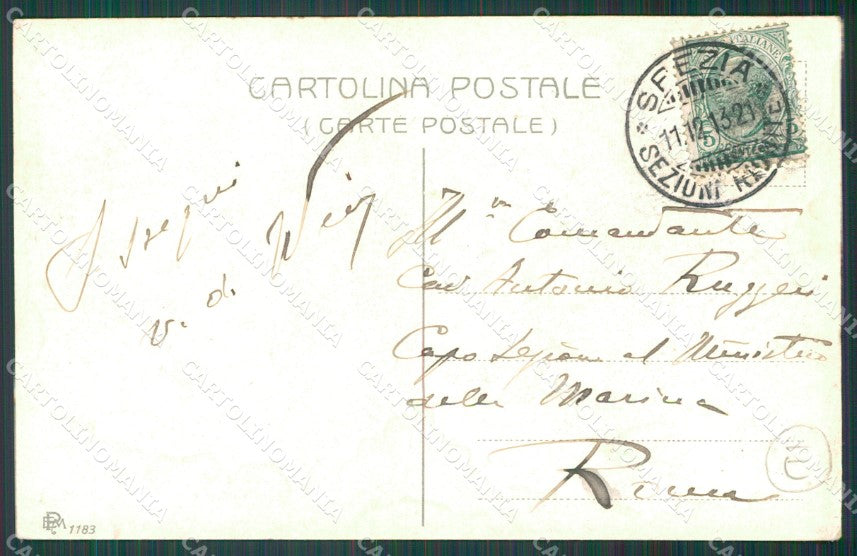 CARTOLINA POSTALE
(CARTE POSTALE)
SPEZIA
11.12.13.21
SEZIONI RIUNITE
5
Ossequi
V. di
Ill.mo Comandante
Cav Antonio Ruggeri
Capo Sezione al Ministero
della Marina
Roma
1183
CARTOLINOMANIA